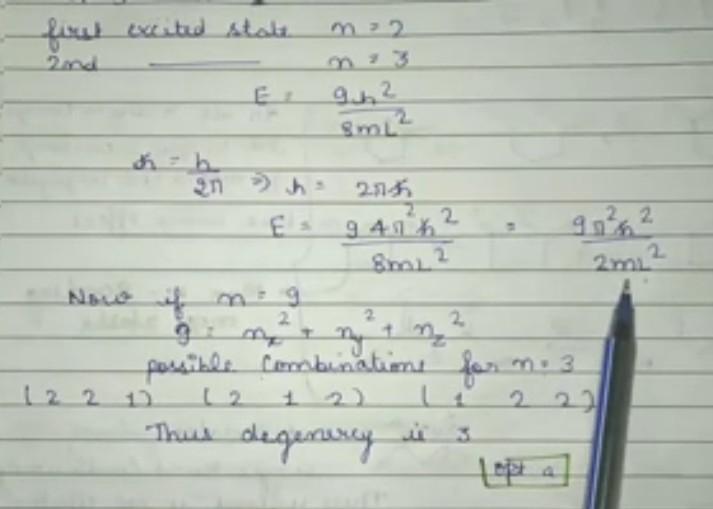 first excited state n = 2
2nd ——— n = 3
E = 9h²/8mL²
ℏ = h/2π ⇒ h = 2πℏ
E = 9 4π²ℏ²/8mL² = 9π²ℏ²/2mL²
Now if n = 9
9 = nx² + ny² + nz²
possible combinations for n = 3
(2 2 1) (2 1 2) (1 2 2)
Thus degenercy is 3
opt a